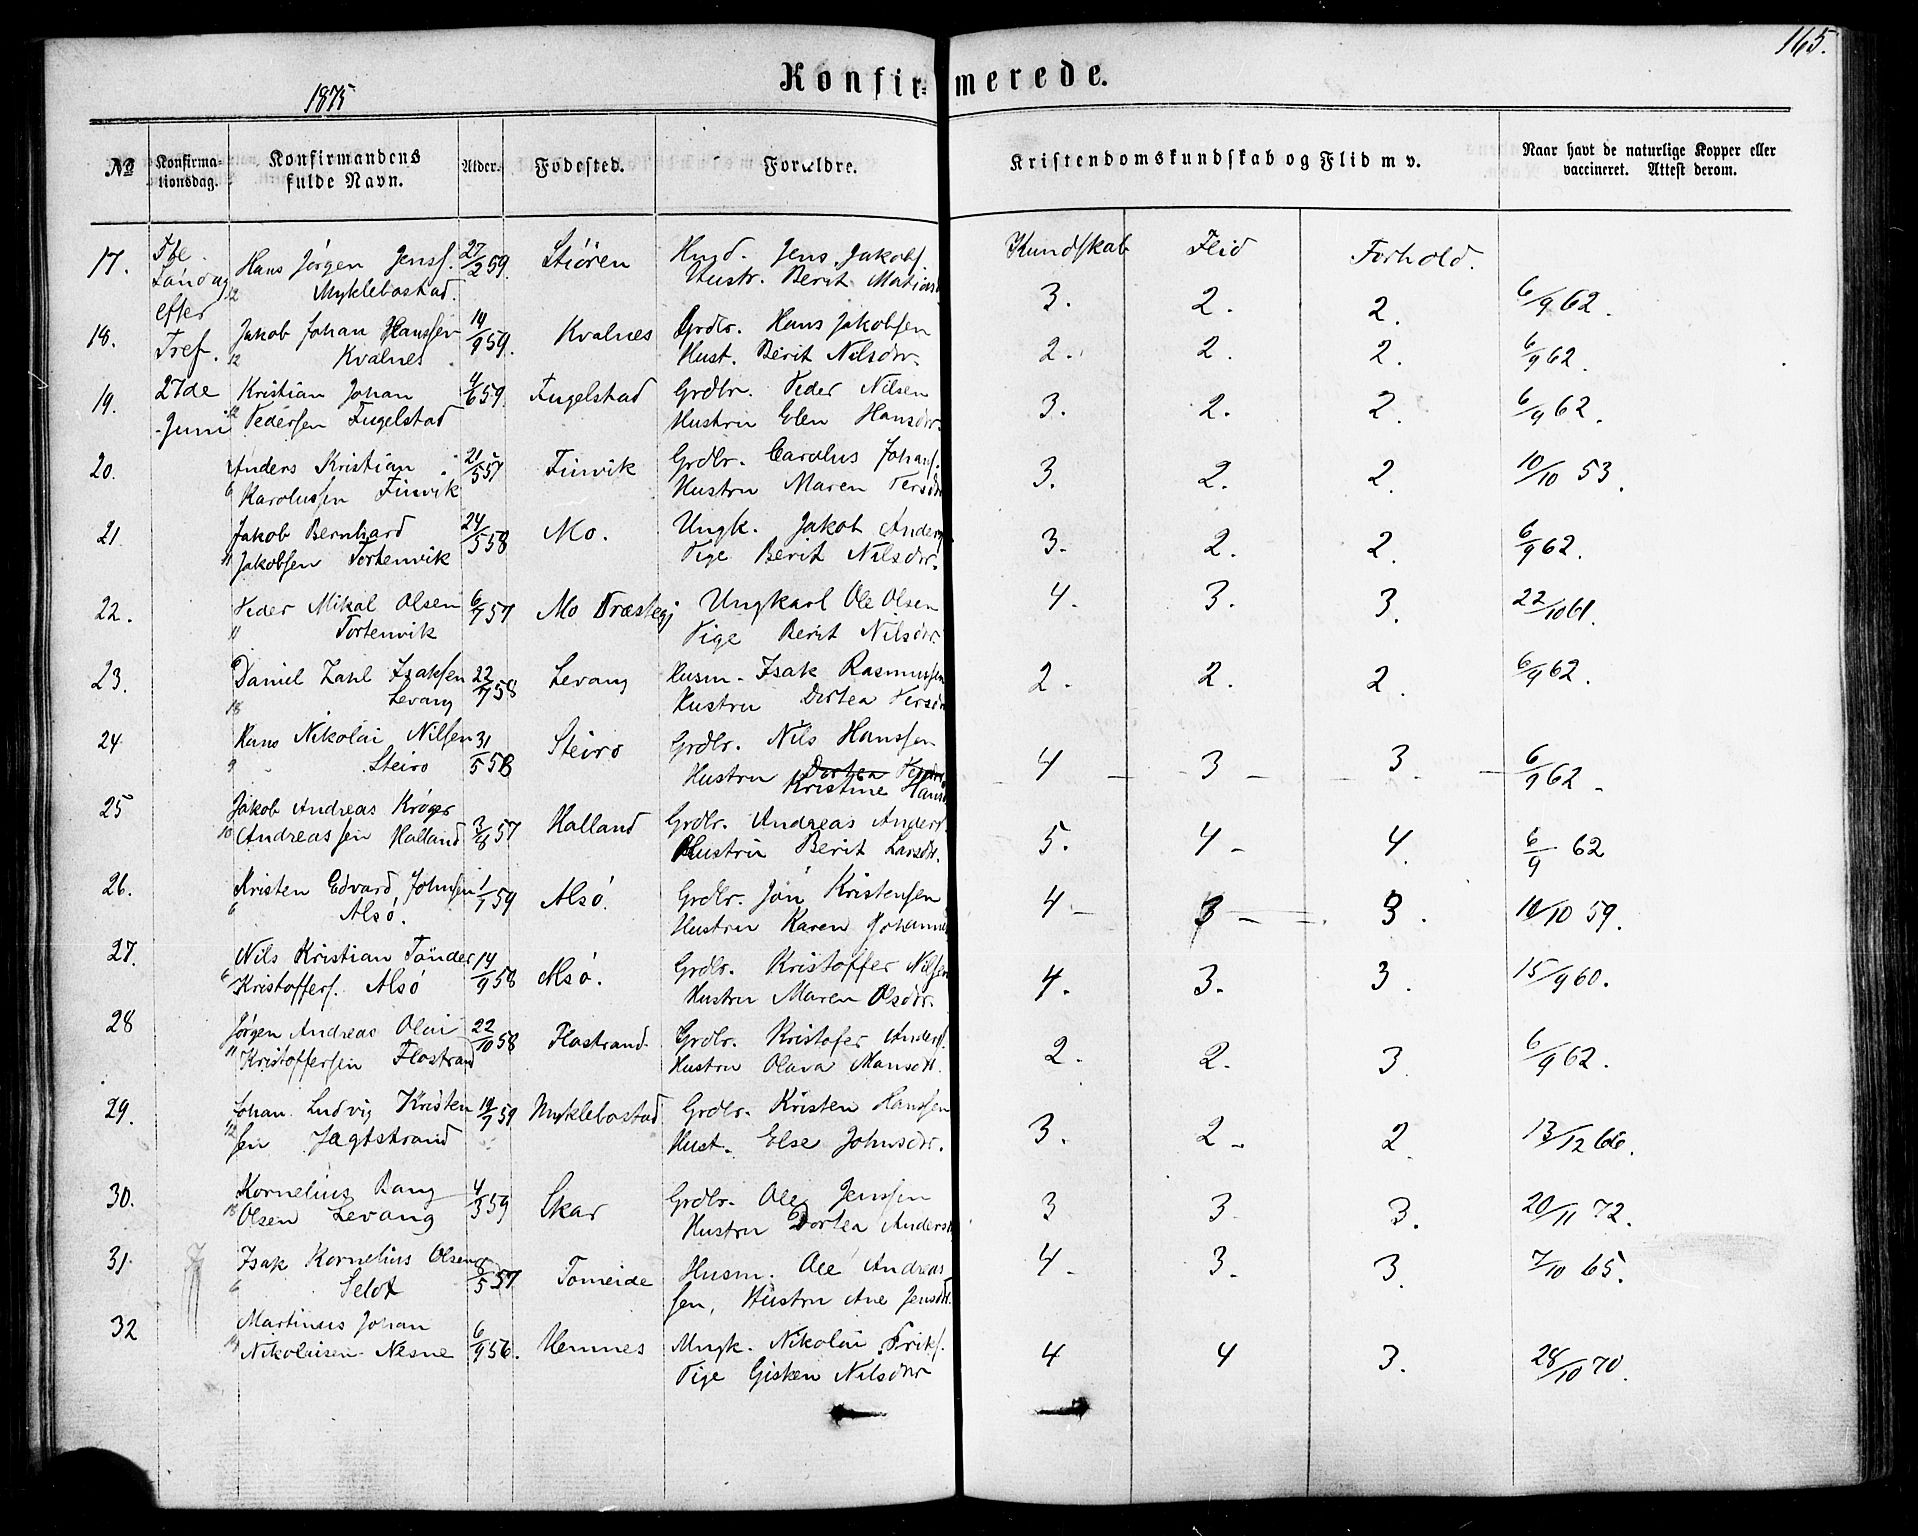 165.
1875
Konfirmerede.
№ Konfirmationsdag. Konfirmandens fulde Navn. Alder. Födested. Forældre. Kristendomskundskab og Flid m v. Naar havt de naturlige Kopper eller vaccineret. Attest derom.
Kundskab Flid Forhold.
17. Söndag Hans Jörgen Jenss. 27/2 59. Jens Jakobs.
12 Myklebostad. Hustr. Berit 3. 2. 2. 6/9 62.
efter
18. Tref. Jakob Johan Hanssen 14/9 59. Kvalnes Grdbr. Hans Jakobsen
12 Kvalnes Hust. Berit Nilsdtr. 2. 2. 2. 6/9 62.
19. 27de Kristian Johan 4/6 59. Fugelstad Grdbr. Peder Nilsen
Juni 12 Pedersen Fugelstad Hustru Elen Hansdtr. 3. 2. 2. 6/9 62.
20. Anders Kristian 21/5 57 Finvik Grdbr. Carolus Johans.
6 Karolussen Finvik Hustru Maren Persdtr 3. 2. 2. 10/10 53.
21 Jakob Bernhard 24/5 58 Mo. Ungk. Jakob Anders
11 Jakobsen Tortenvik Pige Berit Nilsdtr. 3. 2. 2. 6/9 62.
22. Peder Mikal Olsen 6/7 57 Mo Præstegj Ungkarl Ole Olsen
11 Tortenvik Pige Berit Nilsdtr. 4. 3. 3. 22/10 61.
23. Daniel Zahl Isaksen 22/7 58 Levang Husm. Isak Rasmussen
18 Levang Hustru Dortea Persdtr 2. 2. 2. 6/9 62.
24 Hans Nikolai Nilsen 31/5 58 Steiro Grdbr. Nils Hanssen
9 Steiro Hustru Dortea
Kristine Hansd 4 3 3. 6/9 62
25 Jakob Andreas Kröger 3/8 57 Halland Grdbr. Andreas Anders.
10 Andreassen Halland Hustru Berit Larsdtr. 5. 4 4. 6/9 62
26. Kristen Edvard Johnsen 1/1 59 Alsö. Grdbr. Jön Kristensen
6 Alsö. Hustru Karen Johanne 4 3 3. 10/10 59.
27. Nils Kristian Tönder 14/9 58 Alsö. Grdbr. Kristoffer Nilsen
6 Kristoffers. Alsö Hustru Maren Olsdtr. 4. 3. 3. 15/9 60.
28 Jörgen Andreas Olai 22/10 58 Flostrand Grdbr. Kristofer Anders.
11 Kristoffersen Flostrand Hustru Olava Hansdtr. 2. 2. 3. 6/9 62.
29. Johan Ludvig Kristen 19/9 59 Myklebostad Grdbr. Kristen Hanssen
12 sen Jægtstrand Hust. Else Johnsdtr. 3. 2 2. 13/12 66.
30. Kornelius Rang 4/3 59 Skar Grdbr. Ole Jenssen
18 Olsen Levang Hustru Dortea Andersd 3 3 3. 20/11 72.
31. Isak Kornelius Olsen 8/5 57 Tomeide Husm. Ole Andreas
6 Selot sen, Hustru Ane Jensdtr. 4 3. 3. 7/10 65.
32 Martinus Johan 6/9 56. Hemnes Ungk. Nikolai Eriks.
Nikolaisen Nesne Pige Gisken Nilsdtr 4 4 3. 28/10 70.